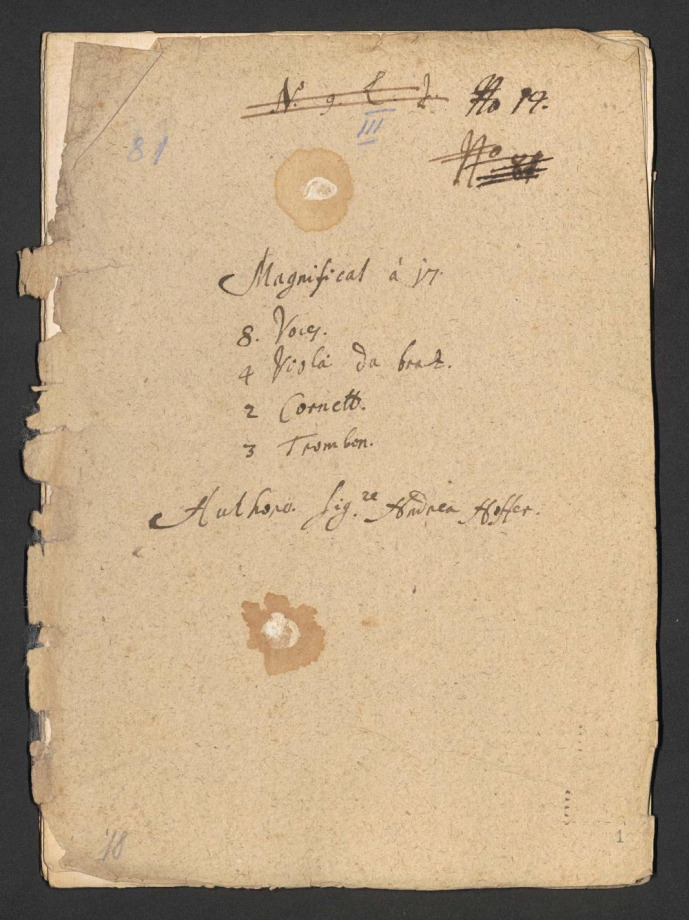 N.º 9. No 19.
III
81
No 81
Magnificat à 17.
8. Voces.
4 Viola da braz.
2 Cornett.
3 Trombon.
Authore. Sig.re Andrea Hoffer.
18
1